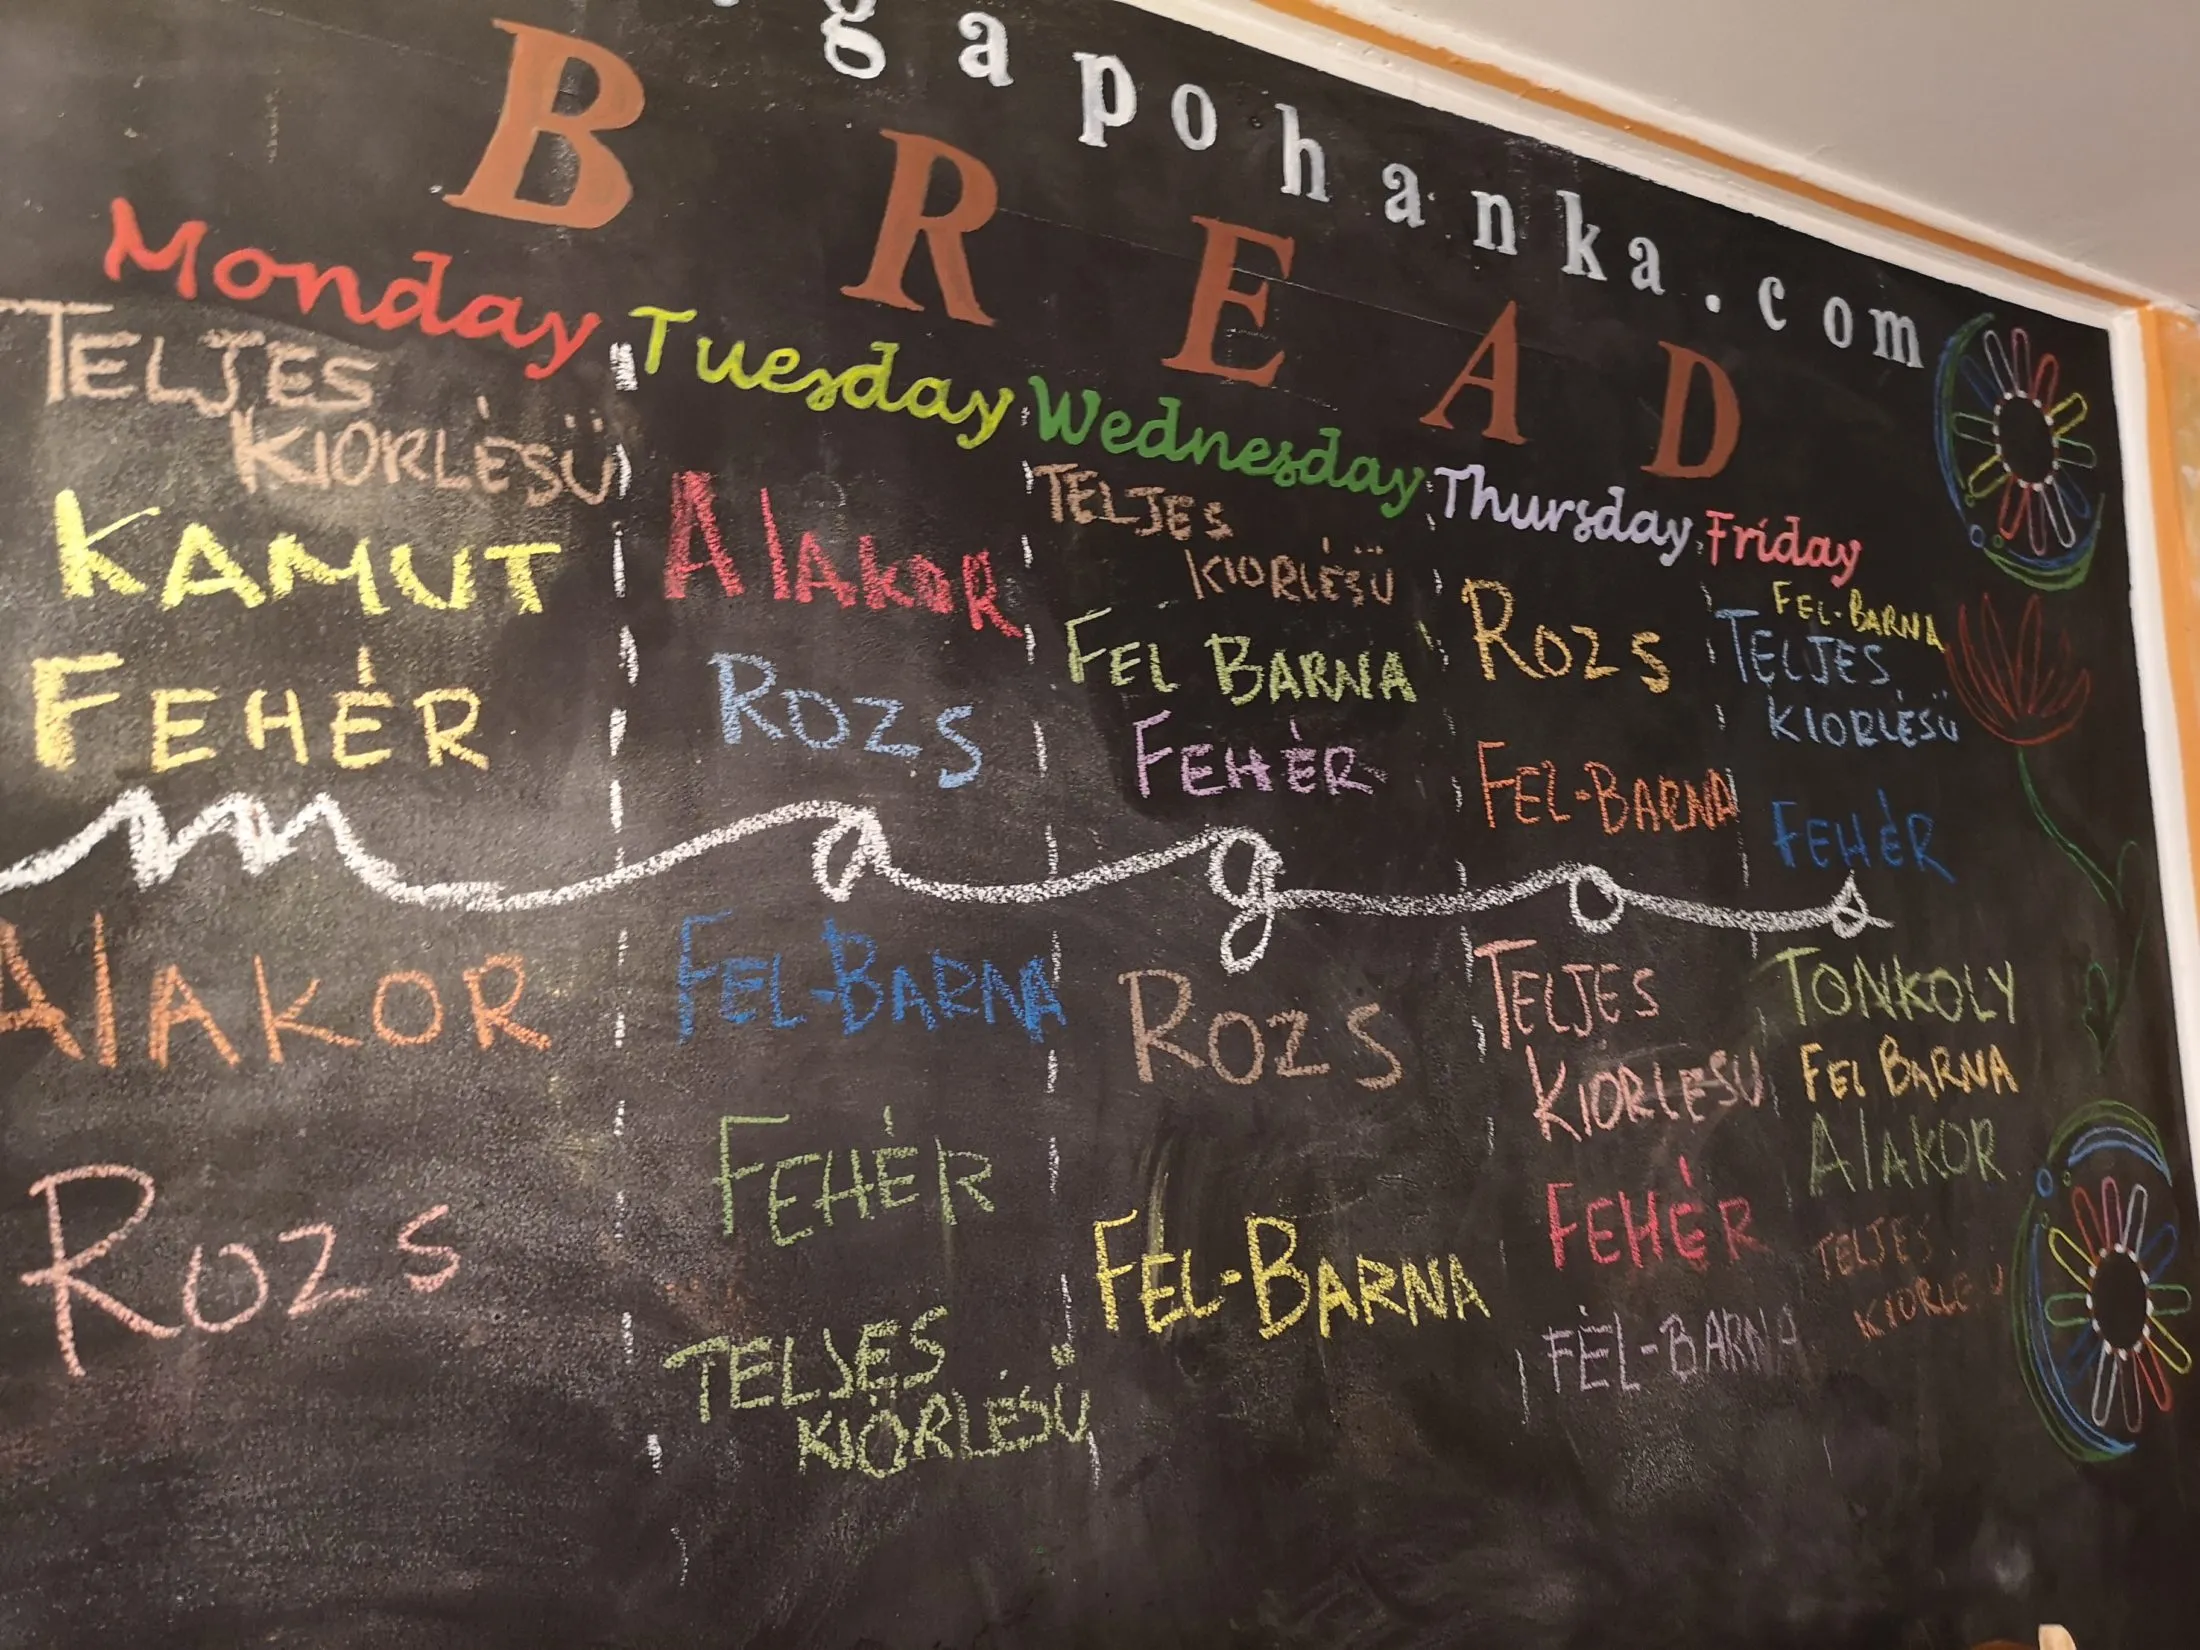 gapohanka.com
BREAD
Monday
TELJES
KIORLÉSÜ
KAMUT
FEHÉR
Tuesday
AlAKOR
ROZS
Wednesday
TELJES
KIORLÉSÜ
FEL BARNA
FEHÉR
Thursday
ROZS
FEL-BARNA
Friday
FEL-BARNA
TELJES
KIORLÉSÜ
FEHÉR
magos
AlAKOR
ROZS
FEL-BARNA
FEHÉR
TELJES
KIÖRLÉSÜ
ROZS
FEL-BARNA
TELJES
KIORLESU
FEHÉR
FÉL-BARNA
TONKOLY
FEL BARNA
AlAKOR
TELJES
KIORLESU